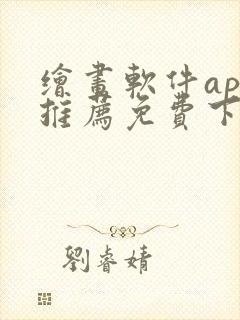 繪畫軟件ap
推薦免費下
劉睿婧